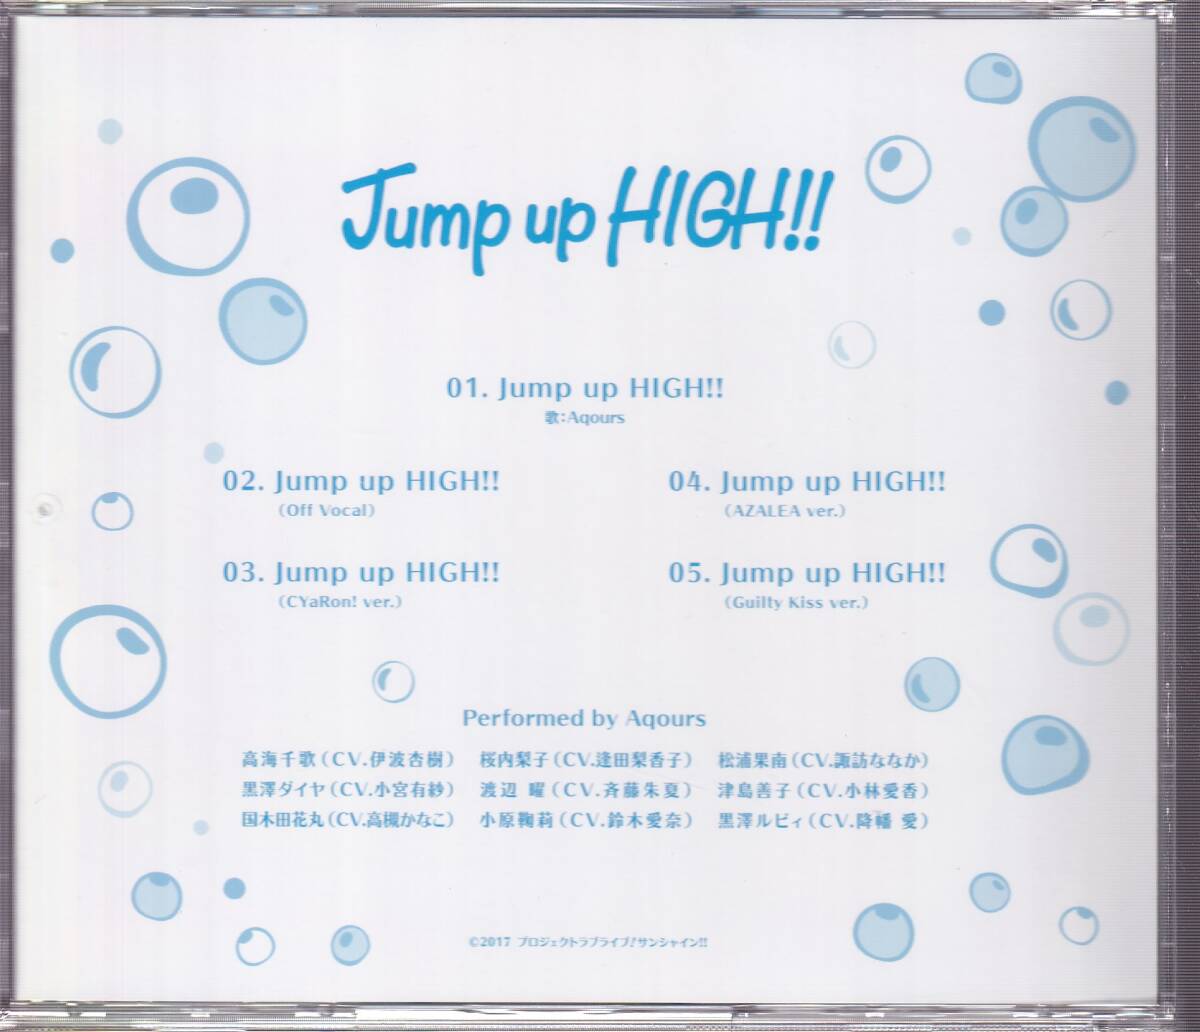 Jump up HIGH!!
01. Jump up HIGH!!
歌:Aqours
02. Jump up HIGH!!
(Off Vocal)
03. Jump up HIGH!!
(CYaRon! ver.)
04. Jump up HIGH!!
(AZALEA ver.)
05. Jump up HIGH!!
(Guilty Kiss ver.)
Performed by Aqours
高海千歌(CV.伊波杏樹) 桜内梨子(CV.逢田梨香子) 松浦果南(CV.諏訪ななか)
黒澤ダイヤ(CV.小宮有紗) 渡辺 曜(CV.斉藤朱夏) 津島善子(CV.小林愛香)
国木田花丸(CV.高槻かなこ) 小原鞠莉(CV.鈴木愛奈) 黒澤ルビィ(CV.降幡 愛)
©2017 プロジェクトラブライブ!サンシャイン!!